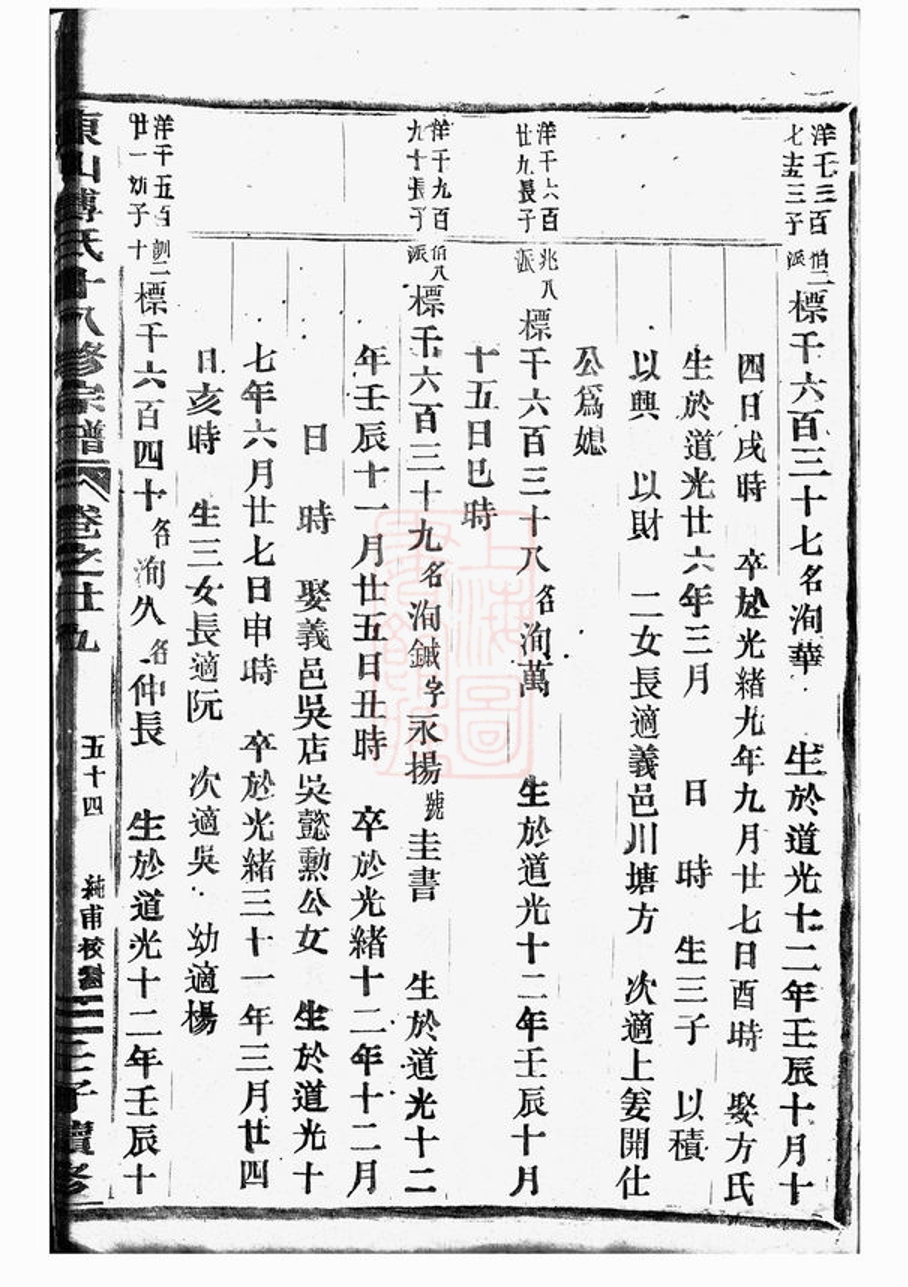 洋千三百
七十三子
派
標千六百三十七名洵華 生於道光十二年壬辰十月十
四日戌時 卒於光緒九年九月廿七日酉時 娶方氏
生於道光廿六年三月 日 時 生三子 以積
以興 以財 二女長適義邑川塘方 次適上姜開仕
公為媳
洋千六百
廿九長子
兆八
派
標千六百三十八名洵萬 生於道光十二年壬辰十月
十五日巳時
洋千九百
九十長子
伯八
派
標千六百三十九名洵鍼字永揚號圭書 生於道光十二
年壬辰十一月廿五日丑時 卒於光緒十二年十二月
日 時 娶義邑吳店吳懿勲公女 生於道光十
七年六月廿七日申時 卒於光緒三十一年三月廿四
日亥時 生三女長適阮 次適吳 幼適楊
洋千五百
廿一幼子
訓二
標千六百四十名洵久名仲長 生於道光十二年壬辰十
東山傅氏十八修宗譜 卷之廿九 五十四 純甫校 壬子續修
上海圖書館藏